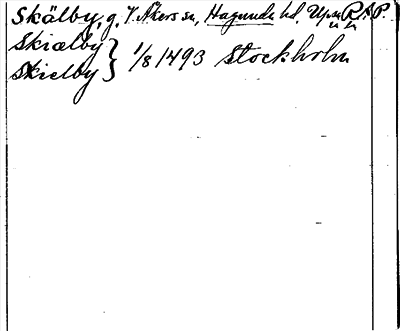 Skälby, g, V. Åkers sn, Hagunda hd, Upps. R.A.P.
Skiælby } 1/8 1493 Stockholm
Skielby